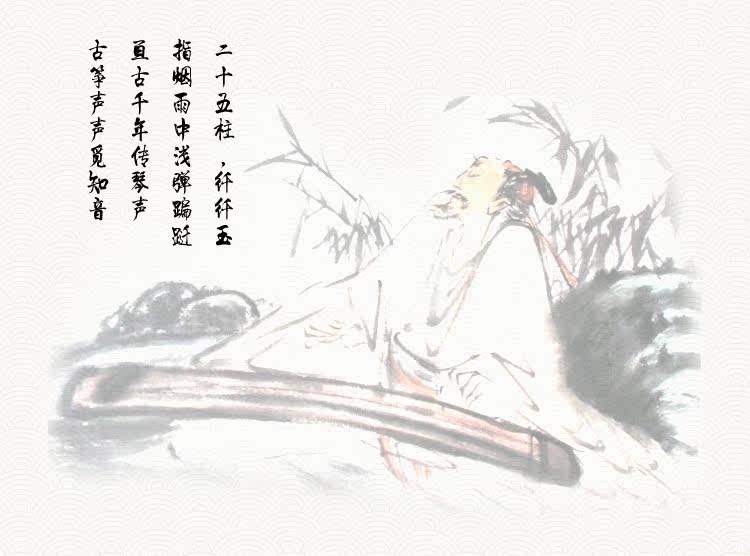 二十五柱，纤纤玉
指烟雨中浅弹蹁跹
亘古千年传琴声
古筝声声觅知音